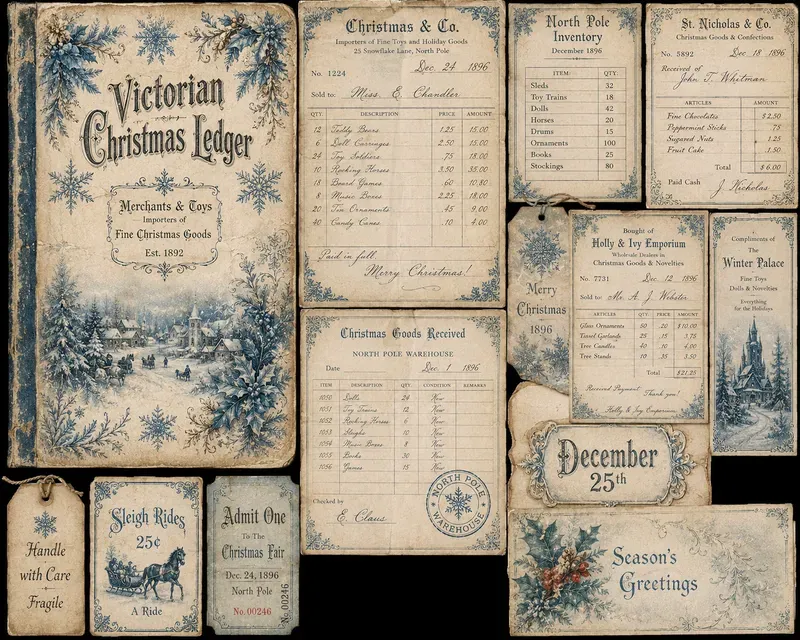 Victorian
Christmas Ledger
Merchants & Toys
Importers of
Fine Christmas Goods
Est. 1892
Christmas & Co.
Importers of Fine Toys and Holiday Goods
25 Snowflake Lane, North Pole
No. 1224 Dec. 24 1896
Sold to: Miss. E. Chandler
QTY DESCRIPTION PRICE AMOUNT
12 Teddy Bears 1.25 15.00
6 Doll Carriages 2.50 15.00
24 Toy Soldiers .75 18.00
10 Rocking Horses 3.50 35.00
18 Board Games .60 10.80
8 Music Boxes 2.25 18.00
20 Tin Ornaments .45 9.00
40 Candy Canes .10 4.00
Paid in full.
Merry Christmas!
North Pole
Inventory
December 1896
ITEM: QTY.
Sleds 32
Toy Trains 18
Dolls 42
Horses 20
Drums 15
Ornaments 100
Books 25
Stockings 80
St. Nicholas & Co.
Christmas Goods & Confections
No. 5892 Dec 18 1896
Received of
John T. Whitman
ARTICLES AMOUNT
Fine Chocolates $2.50
Peppermint Sticks .75
Sugared Nuts 1.25
Fruit Cake 1.50
Total $6.00
Paid Cash J. Nicholas
Merry
Christmas
1896
Bought of
Holly & Ivy Emporium
Wholesale Dealers in
Christmas Goods & Novelties
No. 7731 Dec 12 1896
Sold to: Mr. A. J. Webster
ARTICLES QTY PRICE AMOUNT
Glass Ornaments 50 .20 $10.00
Tinsel Garlands 25 .15 3.75
Tree Candles 40 .10 4.00
Tree Stands 10 .35 3.50
Total $21.25
Received Payment
Thank you!
Holly & Ivy Emporium
Compliments of
The
Winter Palace
Fine Toys
Dolls & Novelties
Everything
for the Holidays
Christmas Goods Received
NORTH POLE WAREHOUSE
Date Dec. 1 1896
ITEM DESCRIPTION QTY. CONDITION REMARKS
1050 Dolls 24 New
1051 Toy Trains 12 New
1052 Rocking Horses 6 New
1053 Sleighs 10 New
1054 Music Boxes 8 New
1055 Books 30 New
1056 Games 15 New
Checked by
E. Claus
NORTH POLE
WAREHOUSE
December
25th
Handle
with Care
Fragile
Sleigh Rides
25¢
A Ride
Admit One
To The
Christmas Fair
Dec. 24, 1896
North Pole
No. 00246
No. 00246
Season's
Greetings